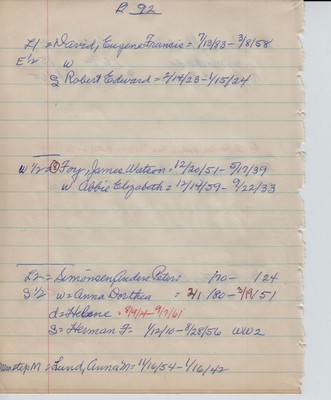 B 92
L1 = David, Eugene Francis = 7/13/83 - 3/8/58
E 1/2 W
S Robert Edward = 2/14/23 - 1/15/24
W 1/2 = Foy, James Watson = 12/20/51 - 5/17/39
W Abbie Elizabeth = 12/14/59 - 9/22/33
L2 = Simonsen, Anders Peter = 1/70 - 1/24
S 1/2 W = Anna Dorthea = 2/1/80 - 3/9/51
d = Helene = 8/9/14 - 9/7/61
S = Herman F = 1/12/10 - 8/28/56 WW2
stepM = Lund, Anna M = 11/16/54 - 1/16/42